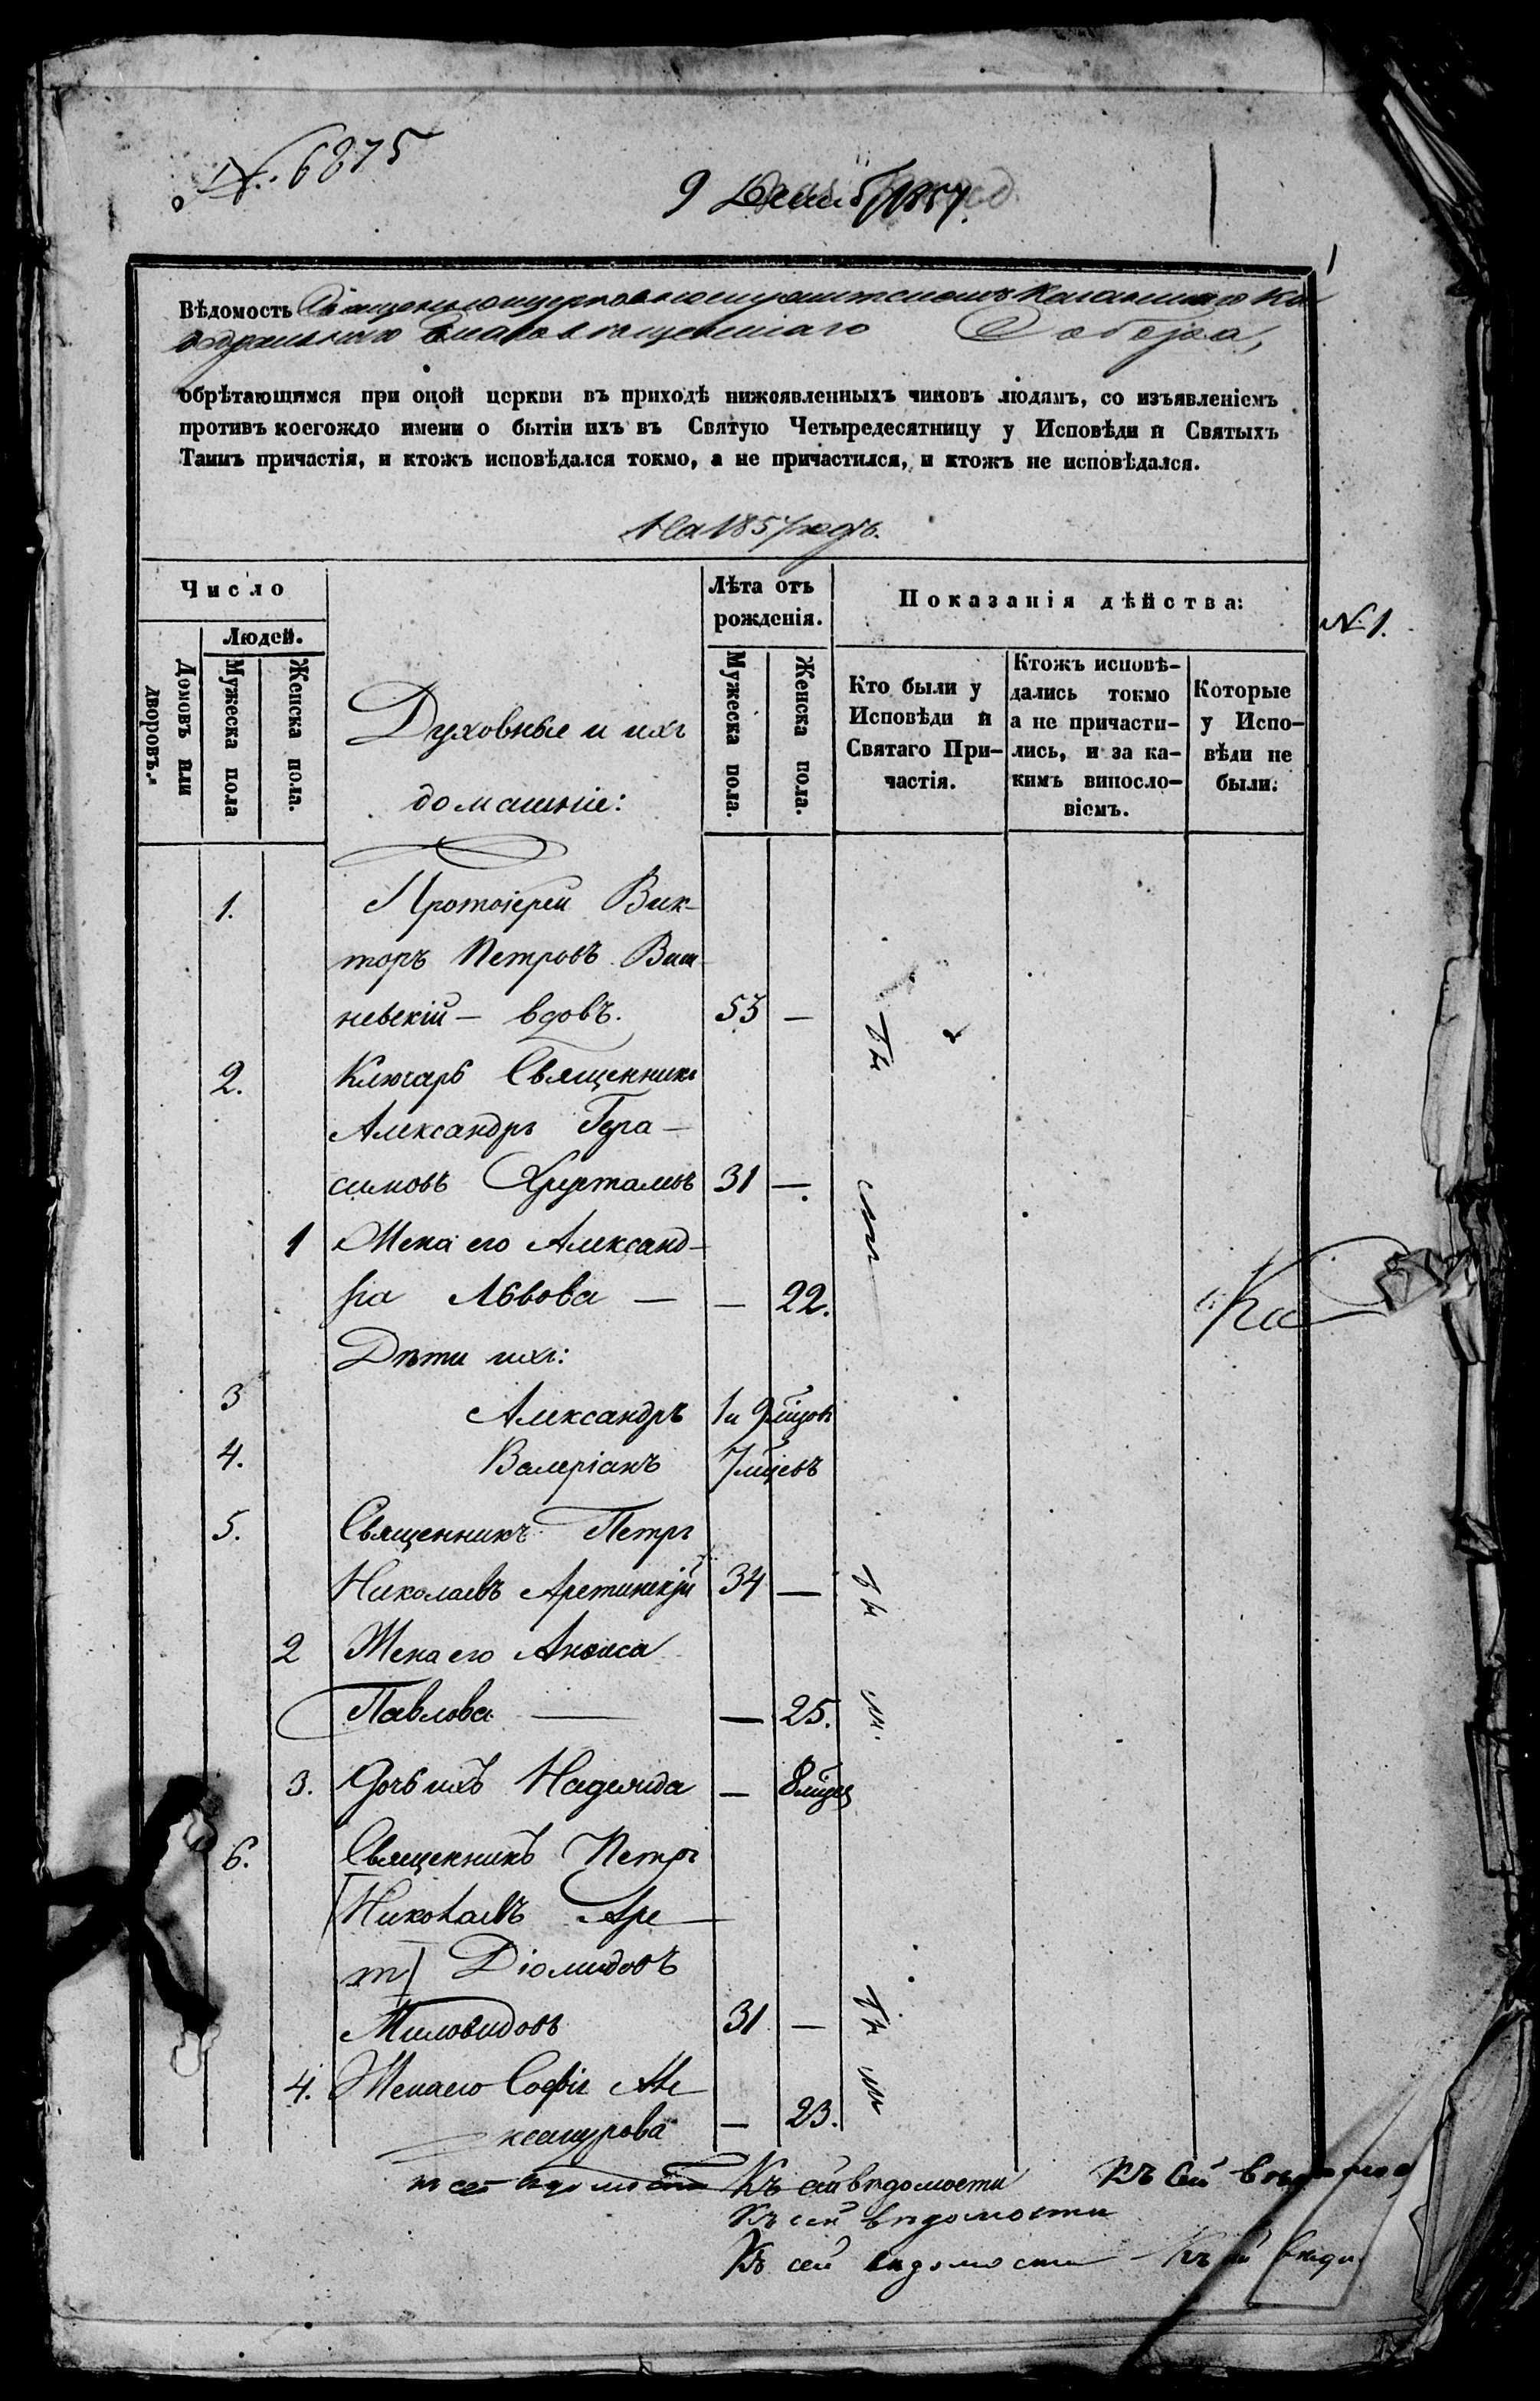 № 6875
9 Декаб 1857.
1
Вѣдомость Казанскаго Ка
ѳедральнаго Благовѣщенскаго Собора,
обрѣтающимся при оной церкви въ приходѣ нижеявленныхъ чиновъ людямъ, со изъявленіемъ
противъ коегождо имени о бытіи ихъ въ Святую Четыредесятницу у Исповѣди и Святыхъ
Таинъ причастія, и ктожъ исповѣдался токмо, а не причастился, и ктожъ не исповѣдался.
На 1857 годъ.
Число
Людей.
Домовъ или дворовъ.
Мужеска пола
Женска пола.
Духовные и ихъ
домашніе:
Лѣта отъ
рожденія.
Мужеска пола.
Женска пола.
Показанія дѣйства:
Кто были у
Исповѣди и
Святаго При-
частія.
Ктожъ исповѣ-
дались токмо
а не причасти-
лись, и за ка-
кимъ виносло-
віемъ.
Которые
у Испо-
вѣди не
были.
№ 1.
1. Протоіерей Вик-
торъ Петровъ Виш-
невскій — вдовъ. 53 —
2. Ключарь Священникъ
Александръ Гера-
симовъ 31 —
1 Жена его Александ-
ра Львова — — 22.
Дѣти ихъ:
3 Александръ 1 и 9 мцовъ
4. Валеріанъ 7 мцевъ
5. Священникъ Петръ
Николаевъ Аретинскій 34 —
2 Жена его Анѳиса
Павлова — — 25.
3. Дочь ихъ Надежда — 8 мцев
6. Священникъ Петръ
Николаевъ Аре-
т Діомидовъ
Миловидовъ 31 —
4. Жена его Софія Але-
ксандрова — 23.
были
были
были
Ка
Къ сей вѣдомости Къ сей вѣдомос
Къ сей вѣдомости
Къ сей вѣдомости — Къ сей вѣдо